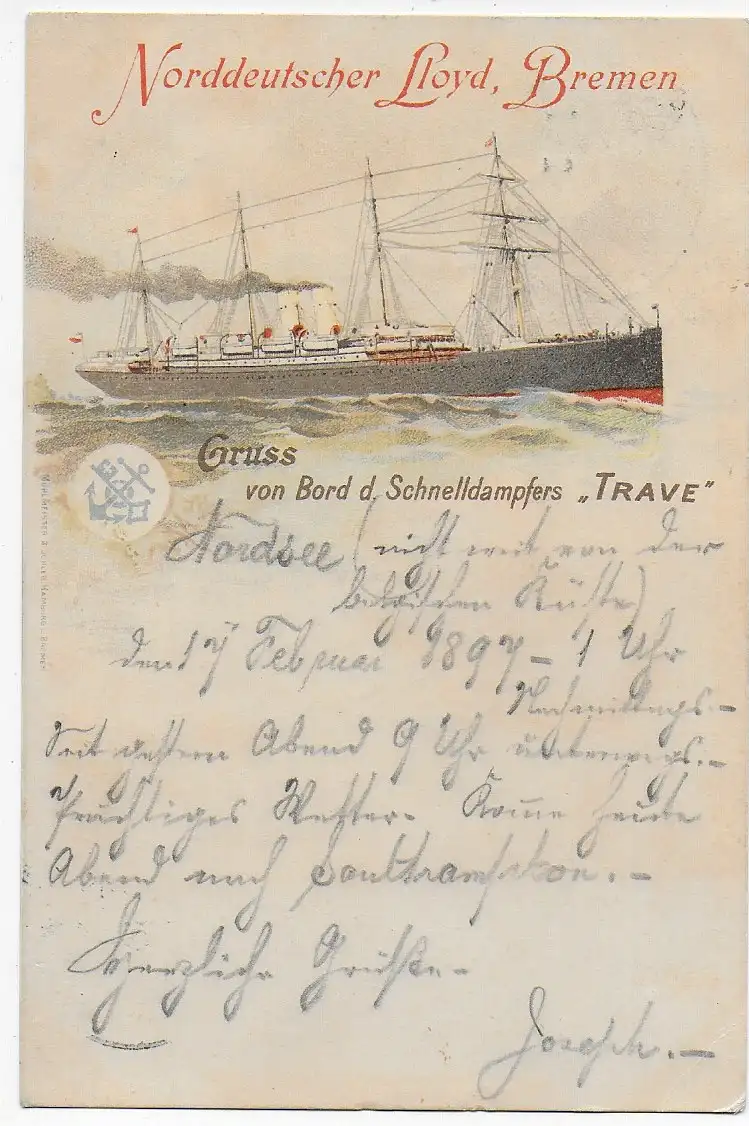 Norddeutscher Lloyd, Bremen
Gruss
von Bord d. Schnelldampfers „TRAVE"
MÜHLMEISTER & JOHLER, HAMBURG - BREMEN
Nordsee (nicht weit von der
belgischen Küste)
den 17 Februar 1897 - 1 Uhr
Nachmittags. -
Seit gestern Abend 9 Uhr unterwegs. -
Prächtiges Wetter. Komme heute
Abend nach Southampton. -
Herzliche Grüße -
Joseph. -